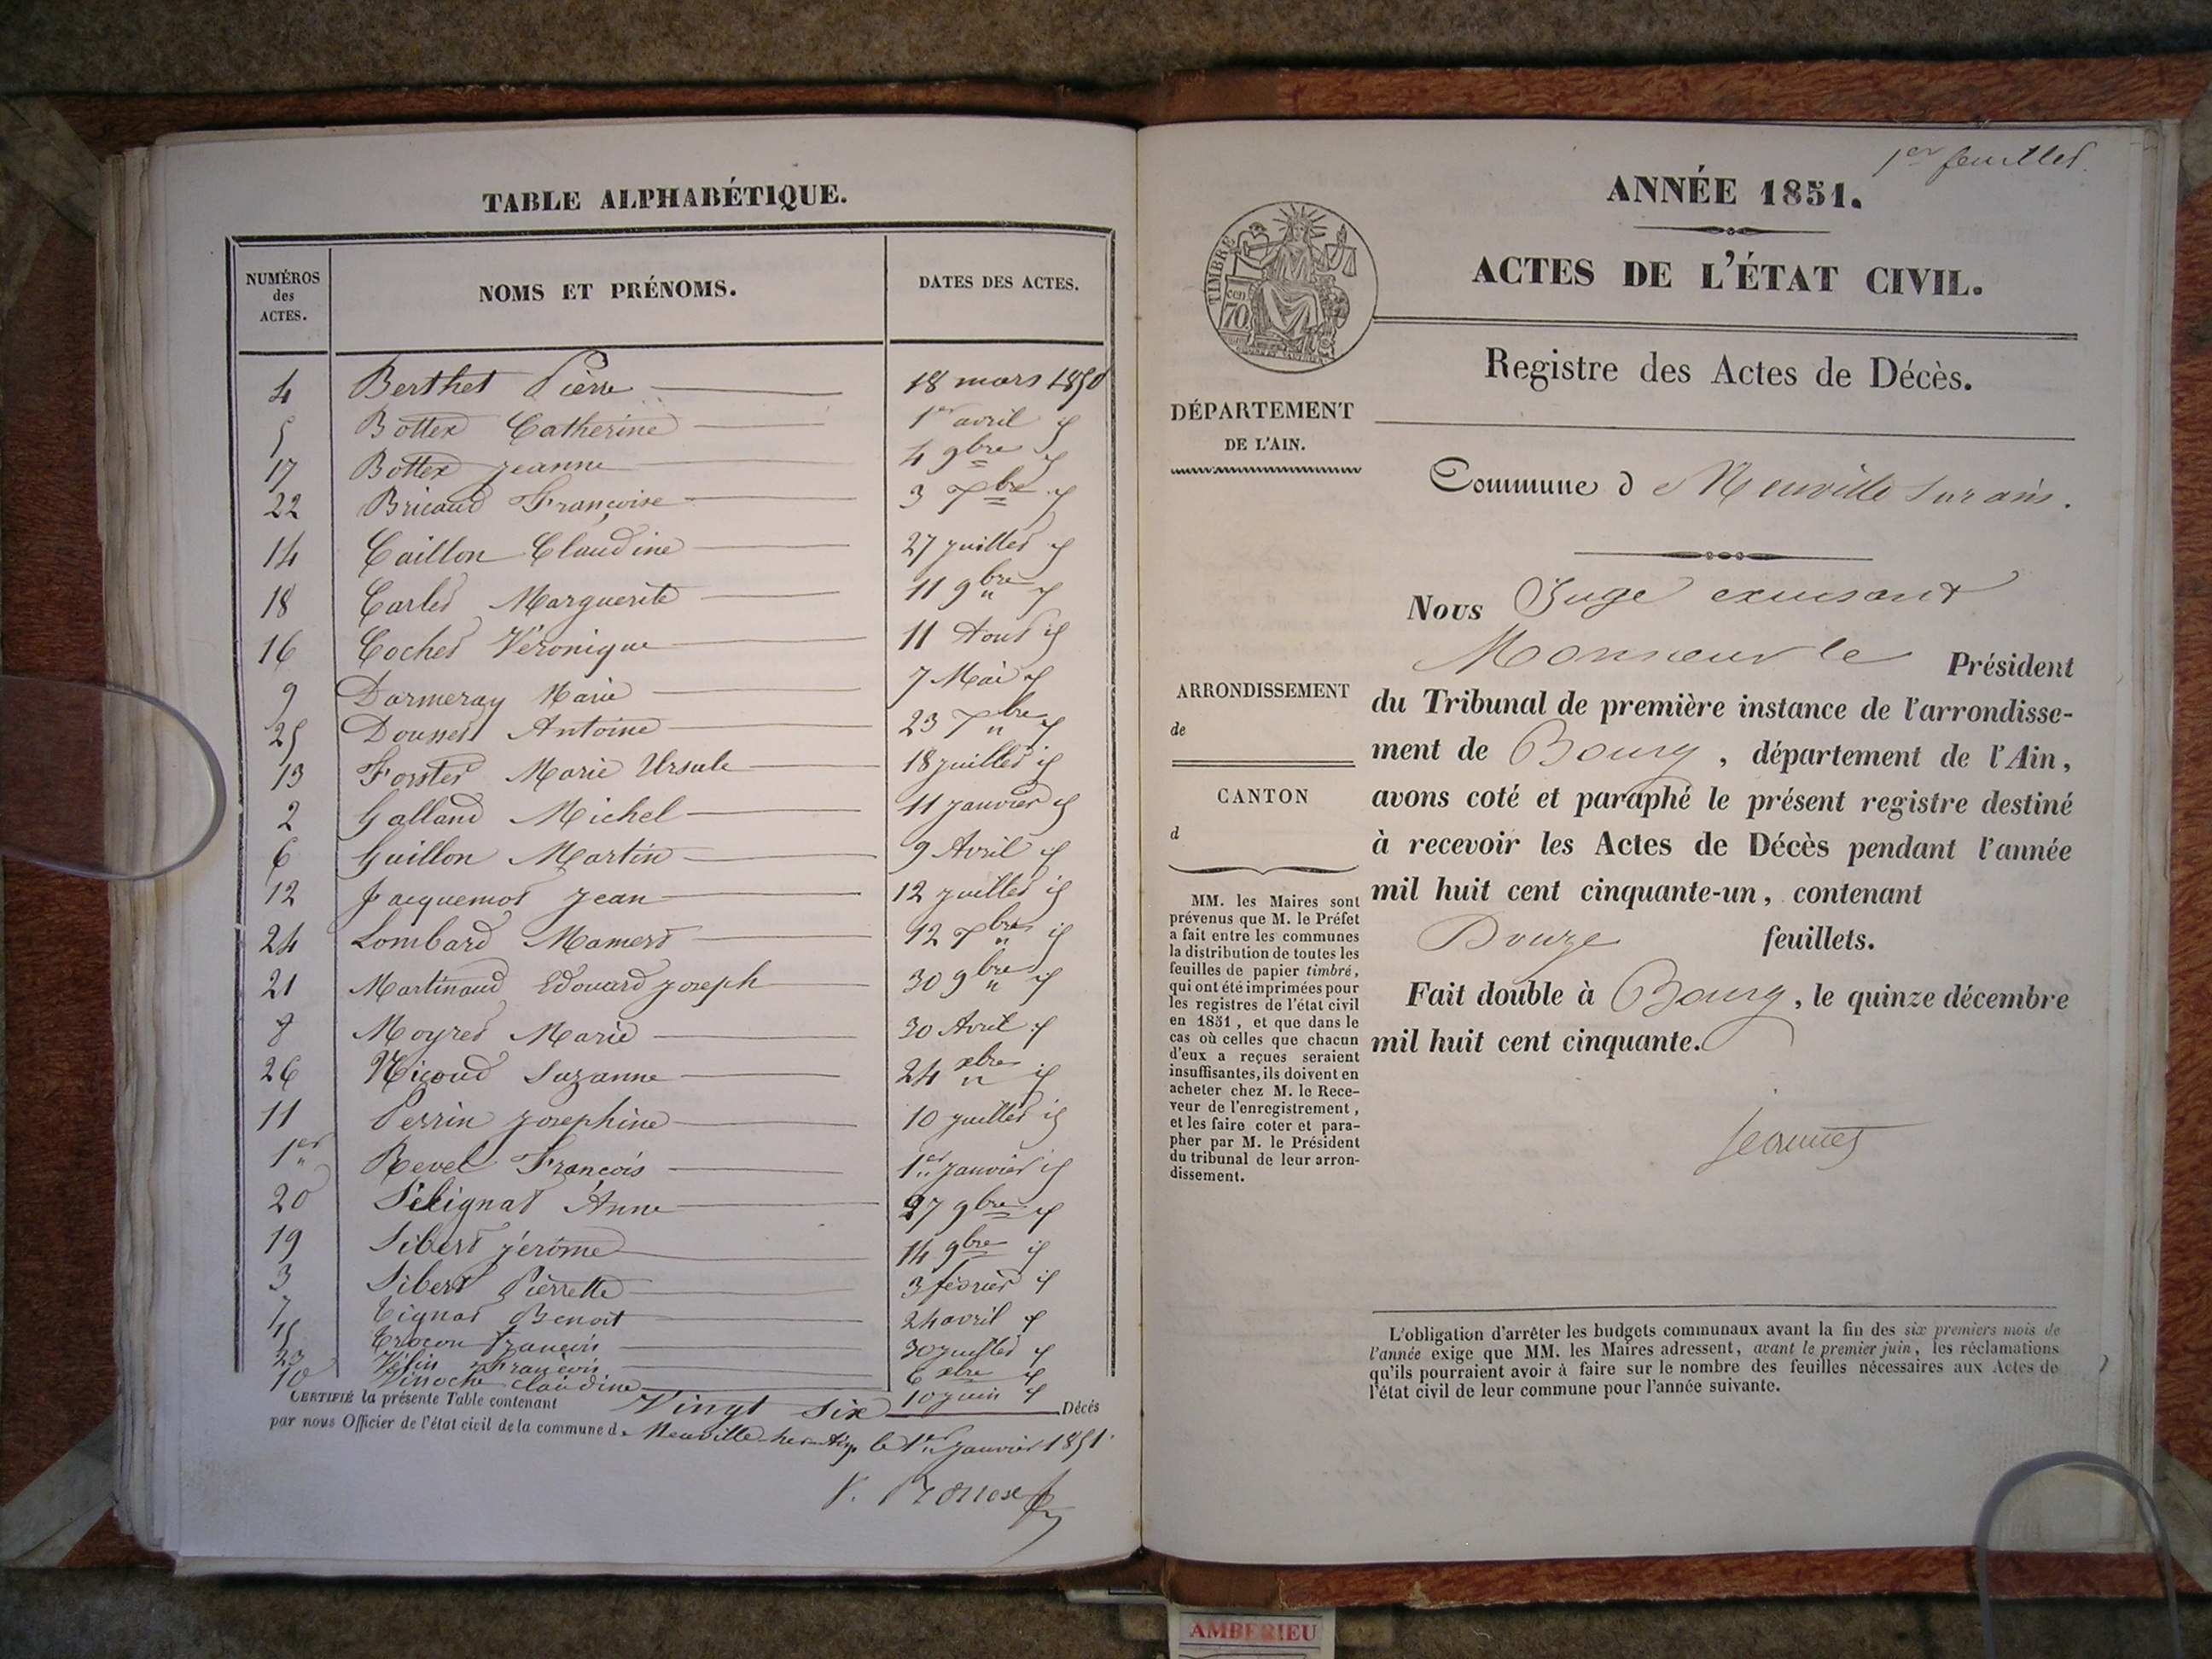 TABLE ALPHABÉTIQUE.
NUMÉROS des ACTES. NOMS ET PRÉNOMS. DATES DES ACTES.
4 Berthet Pierre 18 mars 1850
5 Bottex Catherine 1er avril id
17 Bottex Jeanne 4 9bre id
22 Bricaud Françoise 3 xbre id
14 Caillon Claudine 27 juillet id
18 Carlet Marguerite 11 9bre id
16 Cochet Véronique 11 Aout id
9 Darmeray Marie 7 Mai id
25 Dousset Antoine 23 xbre id
13 Forster Marie Ursule 18 juillet id
2 Galland Michel 11 janvier id
6 Guillon Martin 9 Avril id
12 Jacquemot Jean 12 juillet id
24 Lombard Mamert 12 xbre id
21 Martinaud Edouard Joseph 30 9bre id
8 Moyret Marie 30 Avril id
26 Nicoud Suzanne 24 xbre id
11 Perrin Josephine 10 juillet id
1er Revel François 1er janvier id
20 Sélignat Anne 27 9bre id
19 Sibert jérome 14 9bre id
3 Sibert Pierrette 3 février id
7 Tignat Benoit 24 avril id
15 François 30 juillet id
23 Vélin François 6 xbre id
10 Claudine 10 juin id
CERTIFIÉ la présente Table contenant Vingt Six Décès
par nous Officier de l'état civil de la commune de Neuville-sur-Ain le 1er janvier 1851
1er feuillet.
ANNÉE 1851.
ACTES DE L'ÉTAT CIVIL.
TIMBRE
cen
70
Registre des Actes de Décès.
DÉPARTEMENT
DE L'AIN.
Commune d e Neuville sur ain.
Nous Juge exerçant
Monsieur le Président
ARRONDISSEMENT
de
CANTON
d
du Tribunal de première instance de l'arrondisse-
ment de Bourg, département de l'Ain,
avons coté et paraphé le présent registre destiné
à recevoir les Actes de Décès pendant l'année
mil huit cent cinquante-un, contenant
Douze feuillets.
Fait double à Bourg, le quinze décembre
mil huit cent cinquante.
MM. les Maires sont
prévenus que M. le Préfet
a fait entre les communes
la distribution de toutes les
feuilles de papier timbré,
qui ont été imprimées pour
les registres de l'état civil
en 1851, et que dans le
cas où celles que chacun
d'eux a reçues seraient
insuffisantes, ils doivent en
acheter chez M. le Rece-
veur de l'enregistrement,
et les faire coter et para-
pher par M. le Président
du tribunal de leur arron-
dissement.
L'obligation d'arrêter les budgets communaux avant la fin des six premiers mois de
l'année exige que MM. les Maires adressent, avant le premier juin, les réclamations
qu'ils pourraient avoir à faire sur le nombre des feuilles nécessaires aux Actes de
l'état civil de leur commune pour l'année suivante.
AMBERIEU